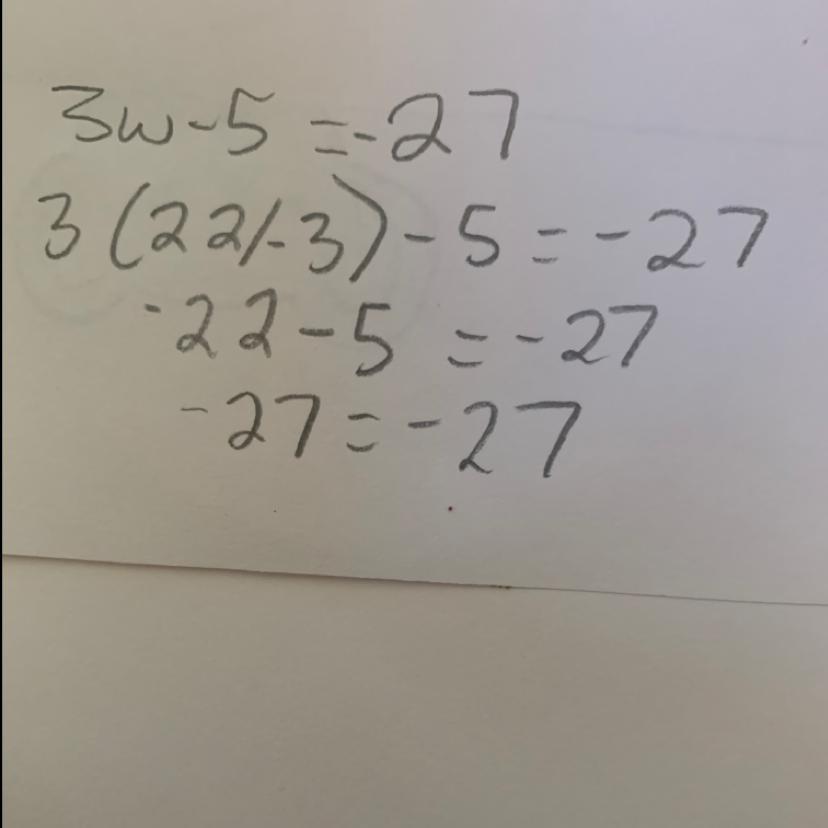 3w-5 =-27
3(22/-3)-5=-27
-22-5 =-27
-27=-27